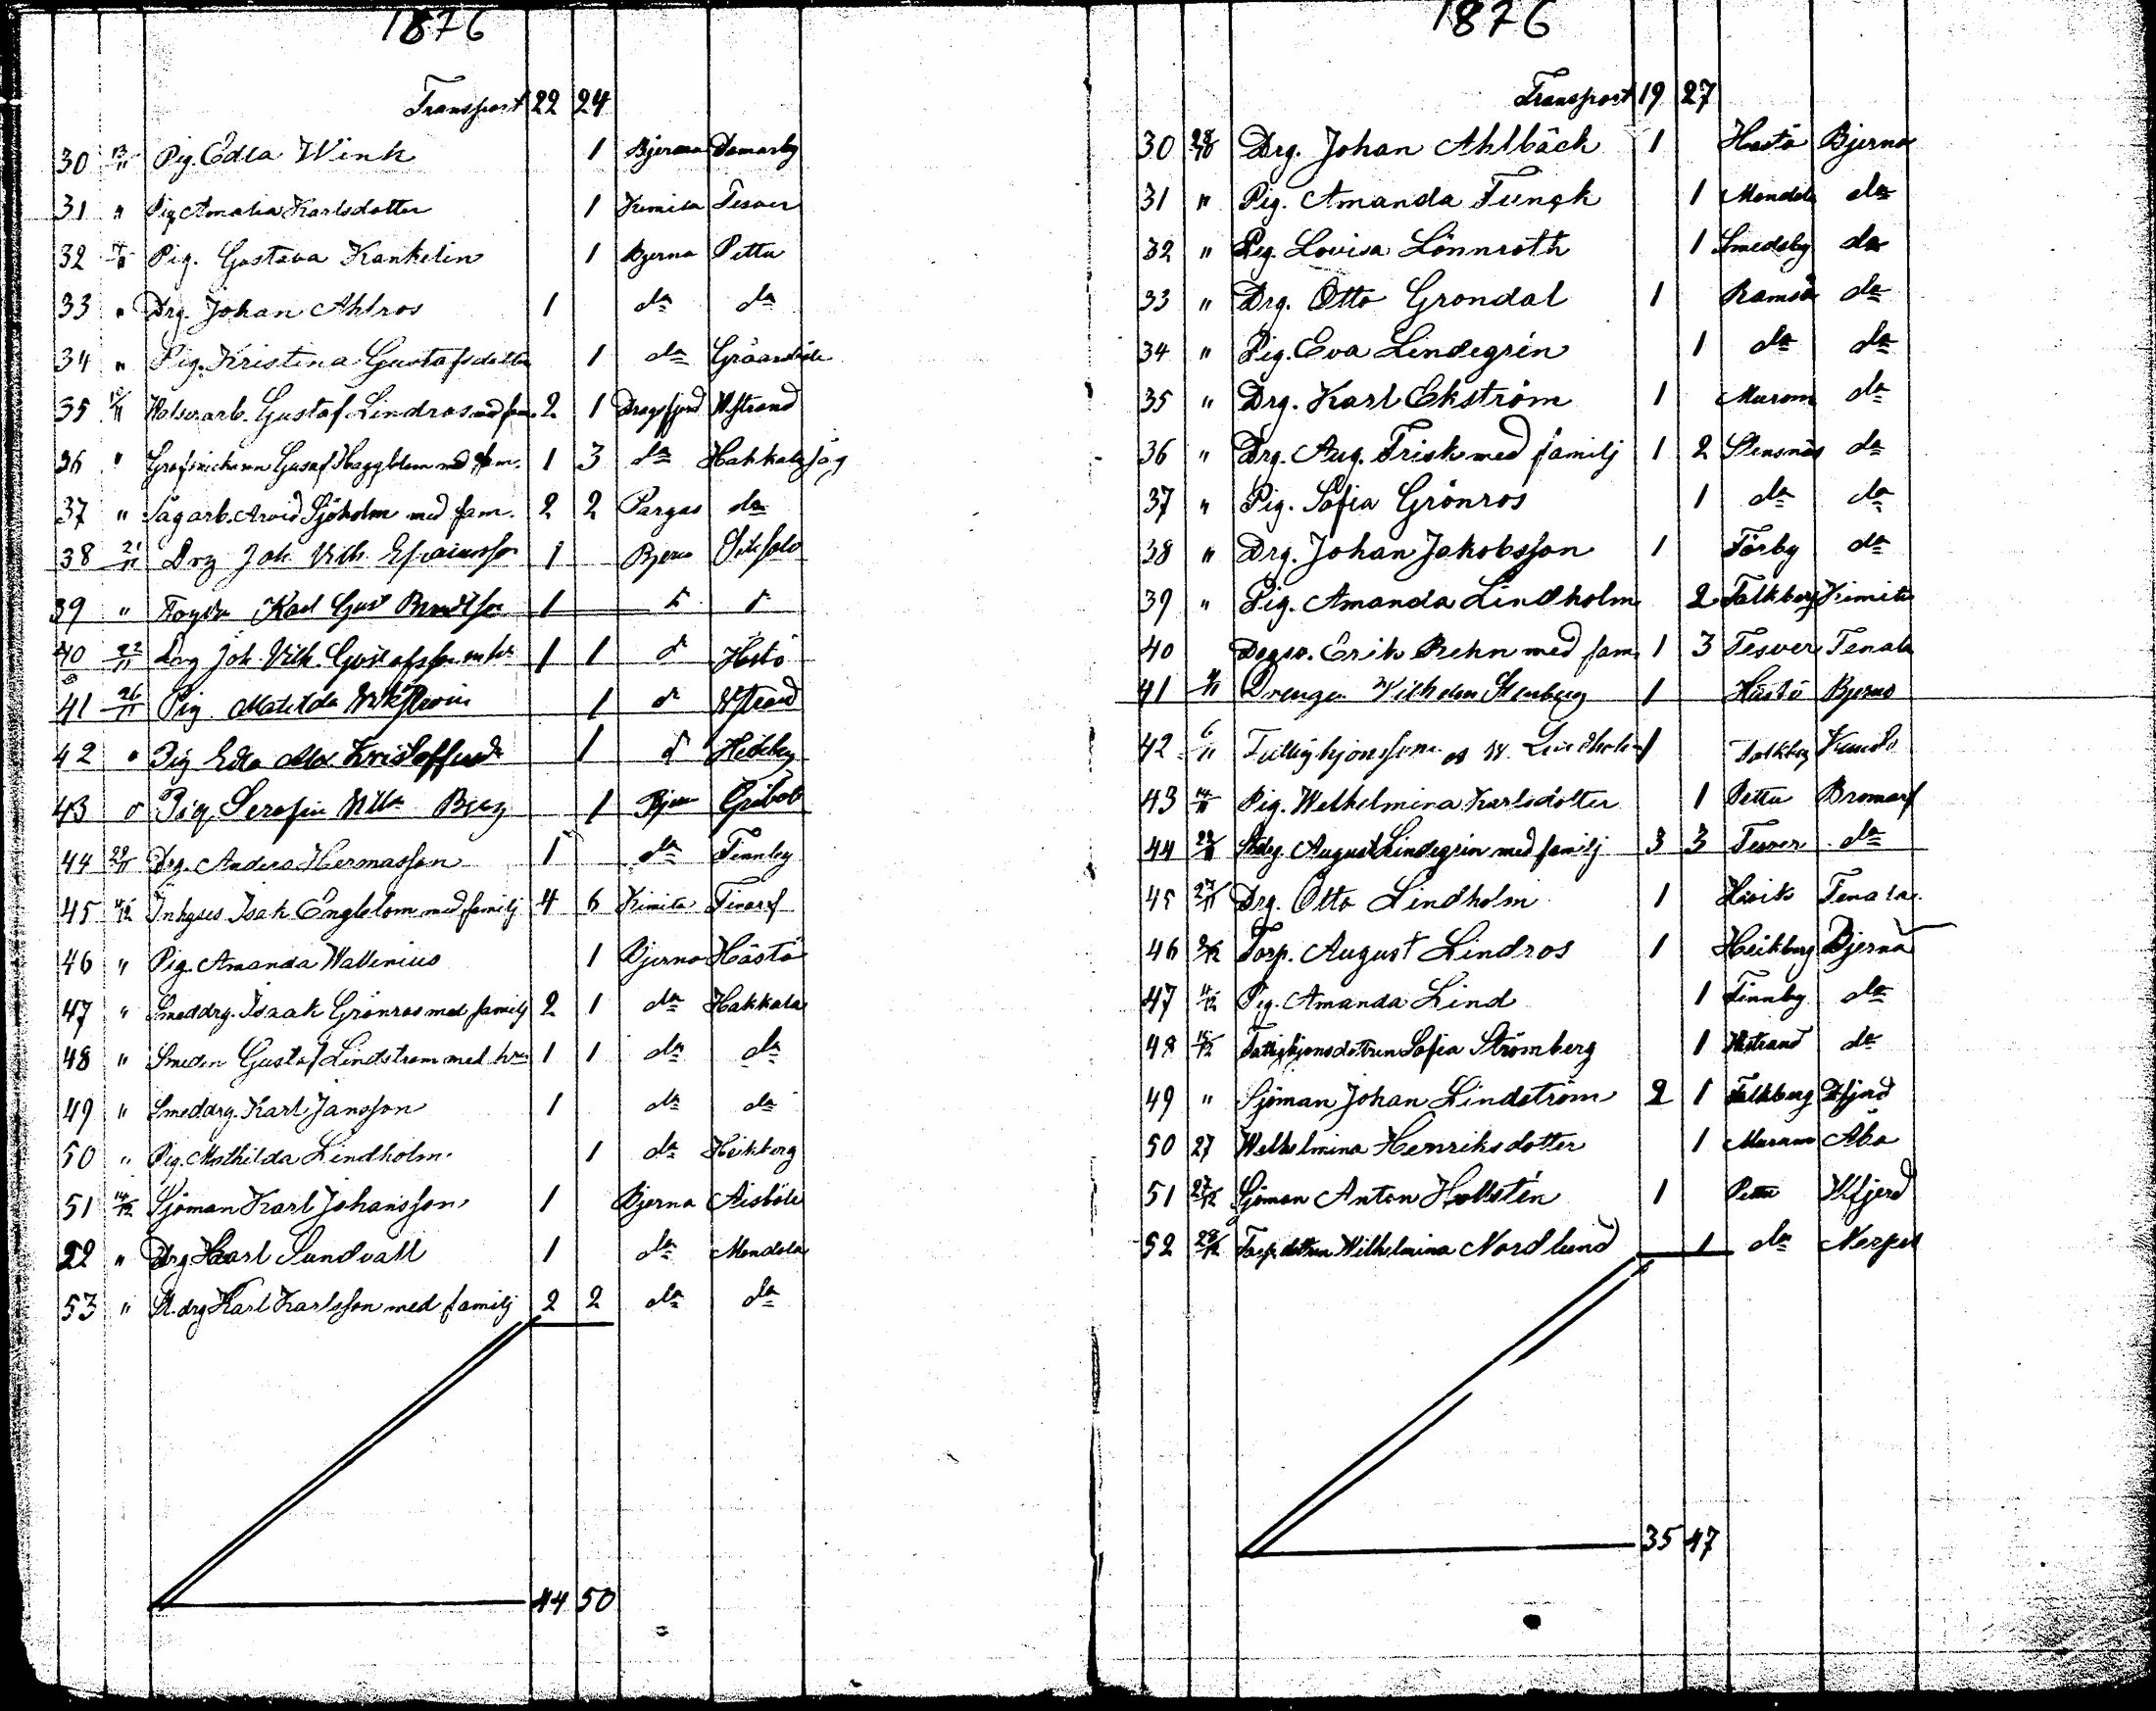 1876
Transport 22 24
30 13/11 Pig. Edla Wink 1 Bjerna Damarby
31 " Pig Amalia Karlsdotter 1 Kimito Tesver
32 Pig. Gustava Kankelin 1 Bjerna Pettu
33 " Drg. Johan Ahlros 1 do do
34 " Pig. Kristina Gustafsdotter 1 do
35 Gustaf Lindros med fam. 2 1 Dragsfjerd Wstrand
36 " Häggblom med fam. 1 3 do Hakkala såg
37 " Sågarb. Arvid Sjöholm med fam. 2 2 Pargas do
38 21/11 Drg Joh. Vilh. 1 Bjerno
39 " Karl Gust 1
40 22/11 Drg Joh. Vilh. Gustafsson 1 1 d Hästö
41 26/11 Pig Matilda 1 d Wstrand
42 " Pig Edla 1 d
43 Pig Serafia 1
44 29/11 Drg. Anders Hermansson 1 do Finnby
45 4/12 Inhyses Isak Englblom med familj 4 6 Kimito Finarf
46 " Pig. Amanda Wallenius 1 Bjerno Hästö
47 " Smeddrg. Isaak Grönros med familj 2 1 do Hakkala
48 " Smeden Gustaf Lindstrom med hu 1 1 do do
49 " Smeddrg. Karl Jansson 1 do do
50 " Pig. Mathilda Lindholm 1 do Heikberg
51 14/12 Sjöman Karl Johansson 1 Bjerna Aisböle
52 " Drg Karl Sundvall 1 do Mendola
53 " St.drg Karl Karlsson med familj 2 2 do do
44 50
1876
Transport 19 27
30 28/10 Drg. Johan Ahlbäck 1 Hästö Bjerno
31 " Pig. Amanda Funck 1 Mendola do
32 " Pig. Lovisa Lönnroth 1 Smedsby do
33 " Drg. Otto Grondal 1 Ramsö do
34 " Pig. Eva Lindegrén 1 do do
35 " Drg. Karl Ekström 1 Murom do
36 " Drg. Aug. Frisk med familj 1 2 Stensnäs do
37 " Pig. Sofia Grönros 1 do do
38 " Drg. Johan Jakobsson 1 Förby do
39 " Pig. Amanda Lindholm 2 Falkberg Kimito
40 Erik Rehn med fam. 1 3 Tesver Tenala
41 Drengen Vilhelm Stenberg 1 Hästö Bjerno
42 6/11 1 Falkberg
43 14/11 Pig. Welhelmina Karlsdotter 1 Pettu Bromarf
44 22/11 Stdrg. August Lindegrin med familj 3 3 Tesver do
45 27/11 Drg. Otto Lindholm 1 Tenala
46 Torp. August Lindros 1 Heikberg Bjerna
47 4/12 Pig. Amanda Lind 1 Finnby do
48 15/12 Fattighjonsdottren Sofia Strömberg 1 Wstrand do
49 " Sjöman Johan Lindström 2 1 Falkberg Dfjerd
50 27 Welhelmina Henriksdotter 1 Murom Åbo
51 27/12 Sjöman Anton Hollstén 1 Pettu Kfjerd
52 28/12 Torpdottren Wilhelmina Nordlund 1 do Nerpes
35 47